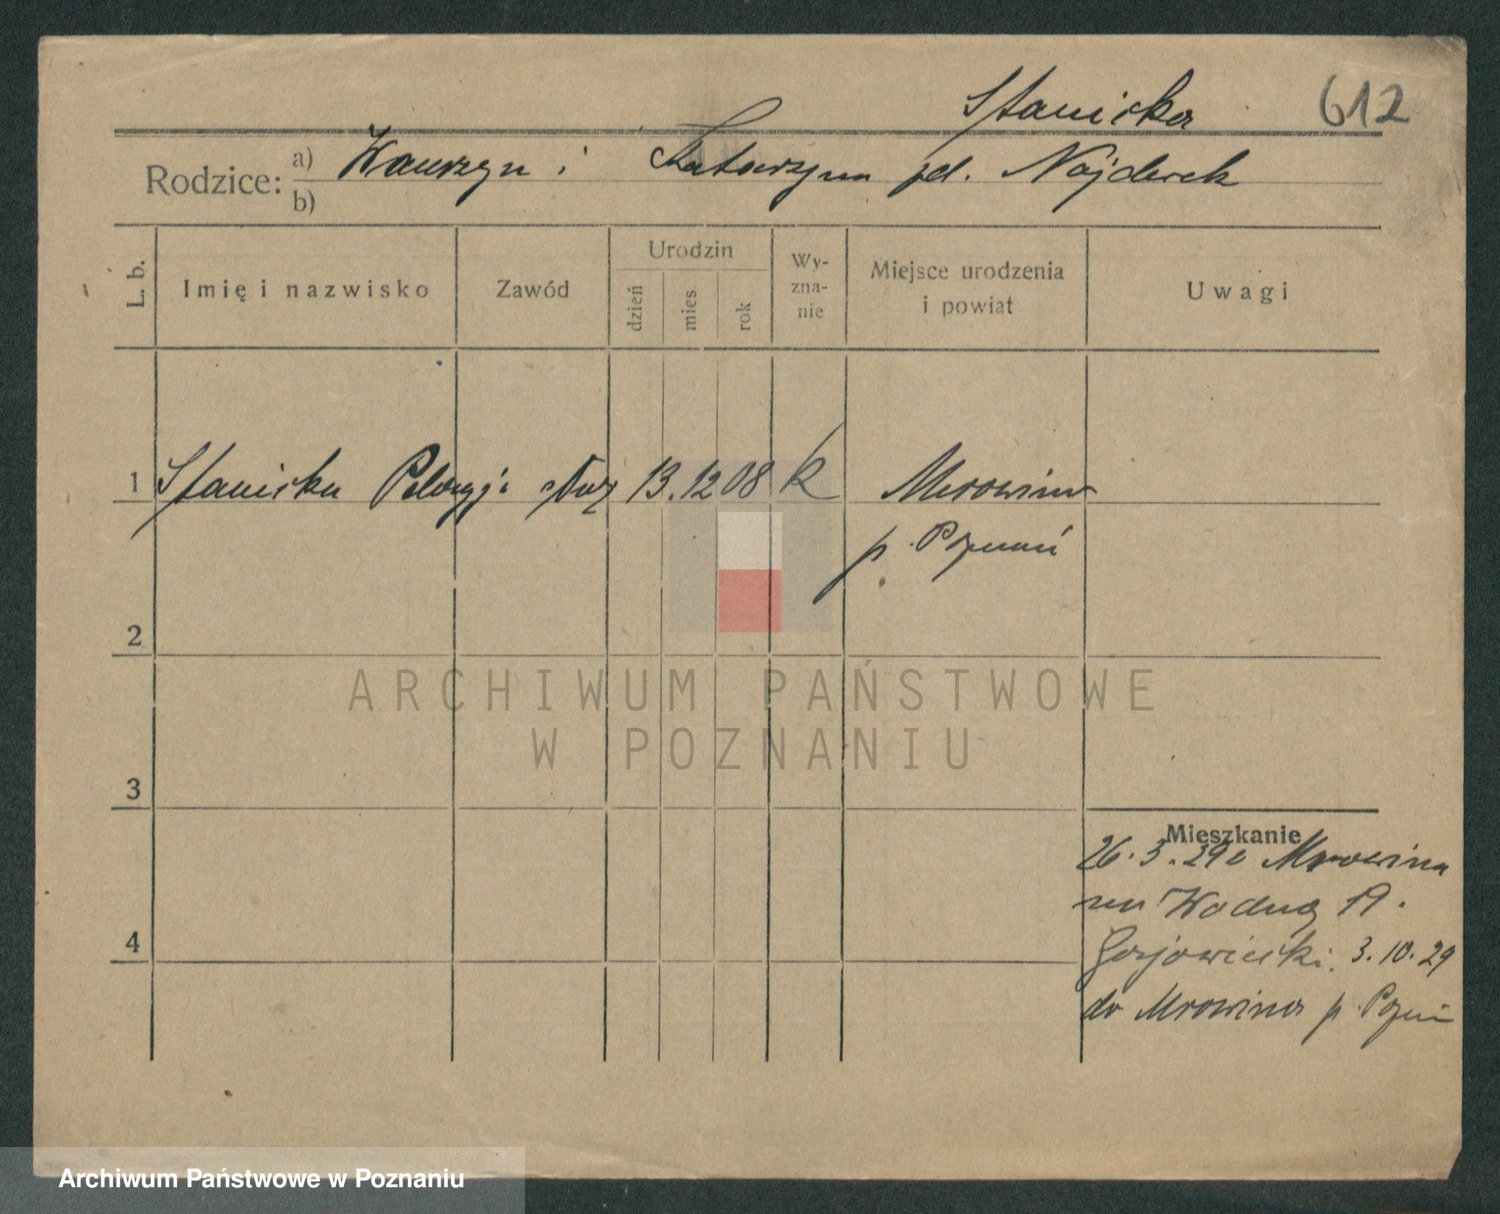 Stanicka 612
Rodzice: a) Wawrzyn i Katarzyna pd. Najderek
b)
L. b. Imię i nazwisko Zawód Urodzin dzień mies. rok Wy-zna-nie Miejsce urodzenia i powiat Uwagi
1 Stanicka Pelagja służ 13. 12 08 k Mrowino
p. Poznań
2
ARCHIWUM PAŃSTWOWE
W POZNANIU
3
Mieszkanie
26. 3. 29 z Mrowina
na Wodną 19.
3. 10. 29
4
do Mrowina p. Pozn
Archiwum Państwowe w Poznaniu